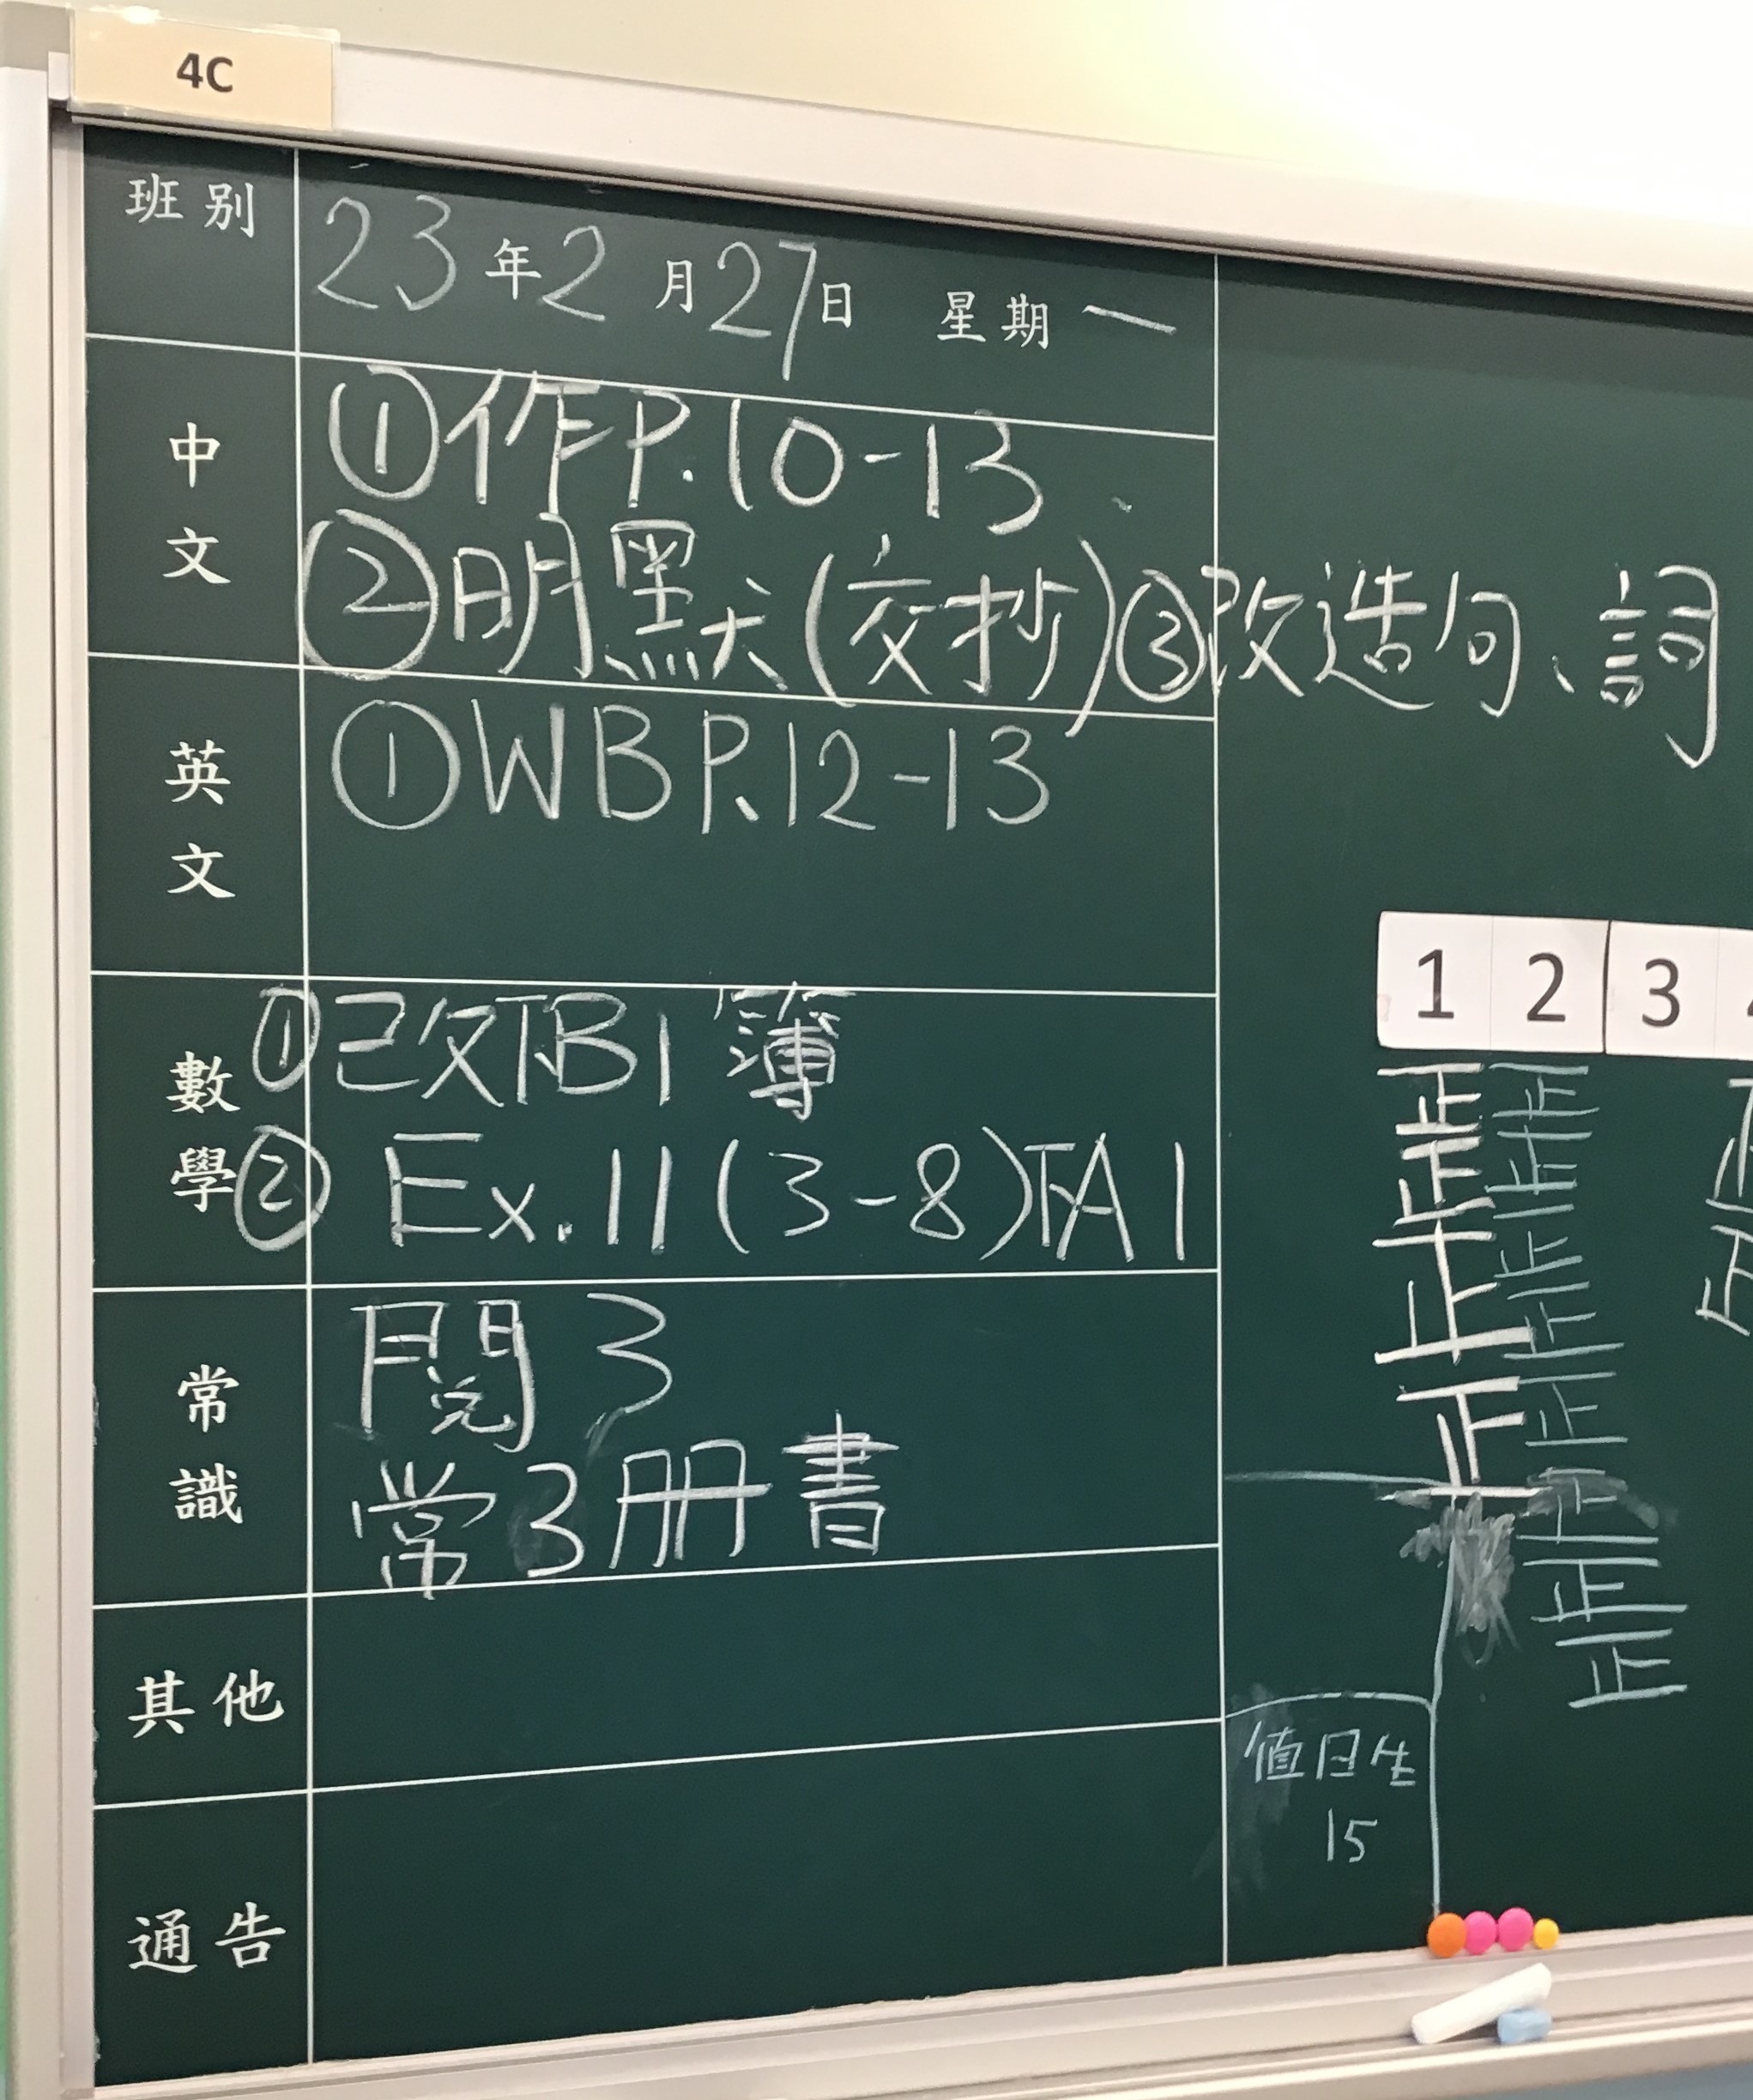 4C
班別 23年2月27日 星期一
中文 ①作P.10-13
②明默(交抄)③改造句、詞
英文 ①WB P.12-13
數學 ①改TB1簿
② Ex.11(3-8)TA1
常識 閱3
常3冊書
其他
通告
1 2 3
正 正
正 正
正 正
正 正
正
正
正
正
值日生
15